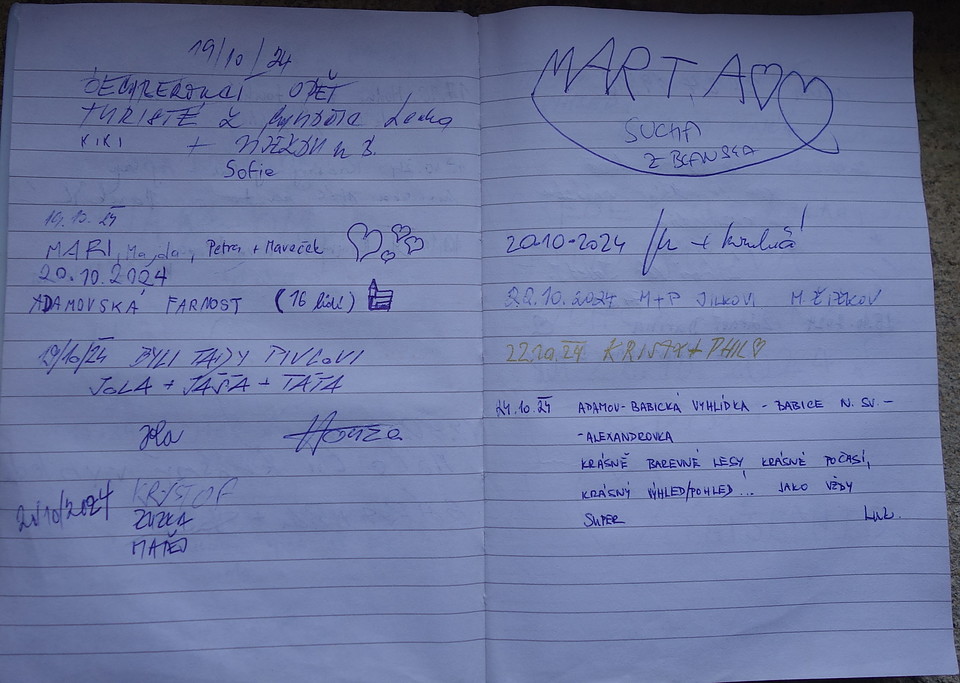 19/10/24
OPĚT
TURISTÉ Z Lenka
KIKI +
Sofie
MARI, Majda, Petra + Mareček
20.10.2024
ADAMOVSKÁ FARNOST (16 lidí)
19/10/24 BYLI TADY PIVCOVI
JOLA + JAŠA + TÁTA
Jola Honza
20/10/2024 KRYŠTOF
ZUZKA
MATĚJ
MARTA
SUCHÁ
Z BLANSKA
20.10.2024
22.10.2024 M+P JILKOVI
22.10.24 KRISTY + PHIL
24.10.24 ADAMOV - BABICKÁ VYHLÍDKA - BABICE N. SV. -
- ALEXANDROVKA
KRÁSNĚ BAREVNÉ LESY, KRÁSNÉ POČASÍ,
KRÁSNÝ VÝHLED/POHLED... JAKO VŽDY
SUPER